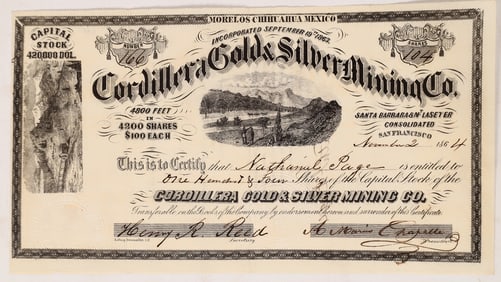 MORELOS CHIHUAHUA MEXICO
INCORPORATED SEPTEMBER 19TH 1863.
CAPITAL
STOCK
420000 DOL.
NUMBER
166
SHARES
104
Cordillera Gold & Silver Mining Co.
4800 FEET
IN
4200 SHARES
$100 EACH
SANTA BARBARA & McLASEYER
CONSOLIDATED
SAN FRANCISCO
November 2 1864
This is to Certify that Nathaniel Page is entitled to
One Hundred & Four Shares of the Capital Stock of the
CORDILLERA GOLD & SILVER MINING CO.
Transferable on the Books of the Company by endorsement hereon and surrender of this Certificate.
Henry R. Reed
Secretary
President